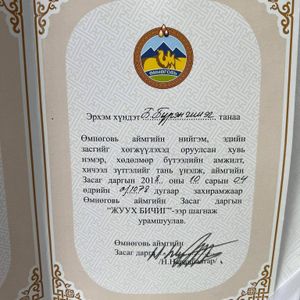 ӨМНӨГОВЬ
Эрхэм хүндэт Б. Бүрэнжингэ танаа
Өмнөговь аймгийн нийгэм, эдийн
засгийг хөгжүүлэхэд оруулсан хувь
нэмэр, хөдөлмөр бүтээлийн амжилт,
хичээл зүтгэлийг тань үнэлж, аймгийн
Засаг даргын 2018 оны 10 сарын 04
өдрийн а/1078 дугаар захирамжаар
Өмнөговь аймгийн Засаг даргын
"ЖУУХ БИЧИГ"-ээр шагнаж
урамшуулав.
Өмнөговь аймгийн
Засаг дарга
/Н.Наранбаатар/